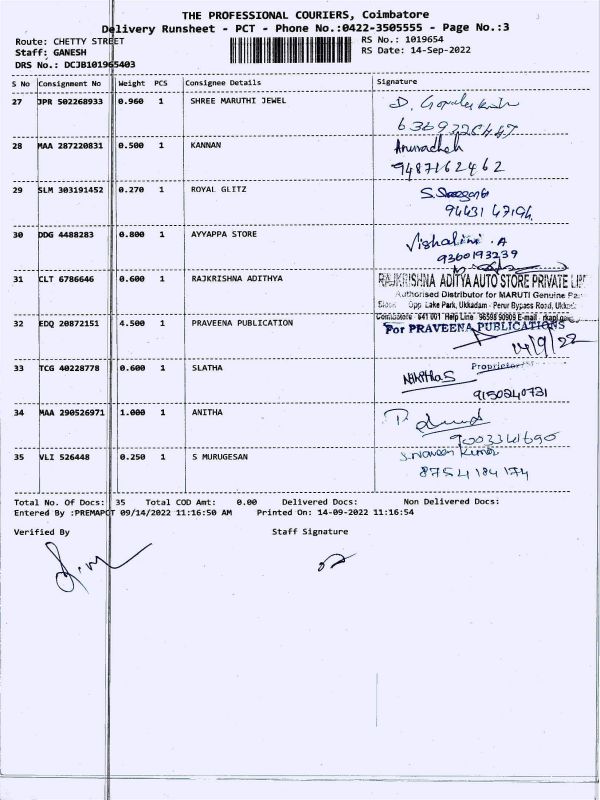 THE PROFESSIONAL COURIERS, Coimbatore
Delivery Runsheet - PCT - Phone No.:0422-3505555 - Page No.:3
Route: CHETTY STREET
RS No.: 1019654
Staff: GANESH
RS Date: 14-Sep-2022
DRS No.: DCJB101965403
S No Consignment No Weight PCS Consignee Details Signature
27 JPR 502268933 0.960 1 SHREE MARUTHI JEWEL
28 MAA 287220831 0.500 1 KANNAN Anuradhah
9487162462
29 SLM 303191452 0.270 1 ROYAL GLITZ
94431 47194
30 DDG 4488283 0.800 1 AYYAPPA STORE Vishalini .A
9360193239
31 CLT 6786646 0.600 1 RAJKRISHNA ADITHYA RAJKRISHNA ADITYA AUTO STORE PRIVATE
Authorised Distributor for MARUTI Genuine
Opp Lake Park, Ukkadam - Perur Bypass Road,
Coimbatore 641 001 Help Line 96598 90909 E-mail
32 EDQ 20872151 4.500 1 PRAVEENA PUBLICATION For PRAVEENA PUBLICATIONS
14/9/22
Proprietor
33 TCG 40228778 0.600 1 SLATHA NIKITHA S
9150240731
34 MAA 290526971 1.000 1 ANITHA
9003341690
35 VLI 526448 0.250 1 S MURUGESAN S.Naveen Kumar
8754184174
Total No. Of Docs: 35 Total COD Amt: 0.00 Delivered Docs: Non Delivered Docs:
Entered By :PREMAPCT 09/14/2022 11:16:50 AM Printed On: 14-09-2022 11:16:54
Verified By Staff Signature